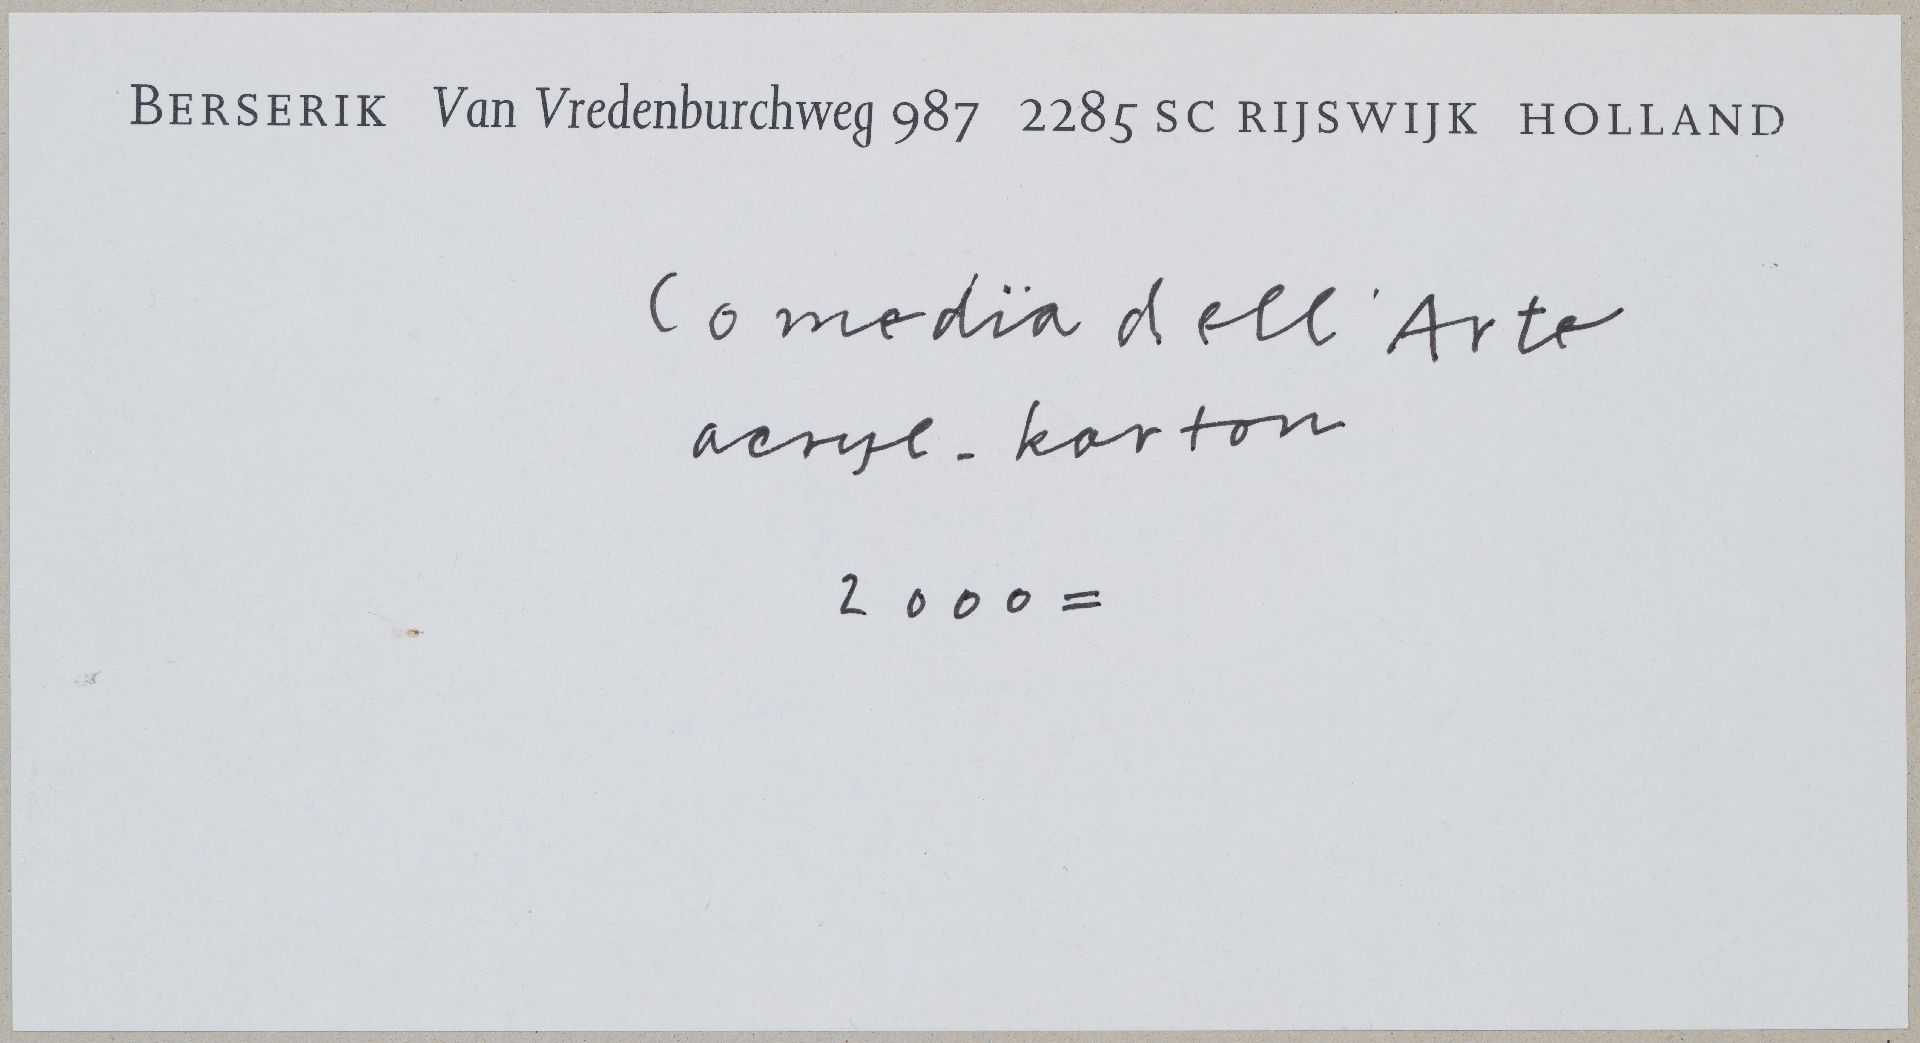 BERSERIK Van Vredenburchweg 987 2285 SC RIJSWIJK HOLLAND
Comedïa dell'Arte
acryl - karton
2000=